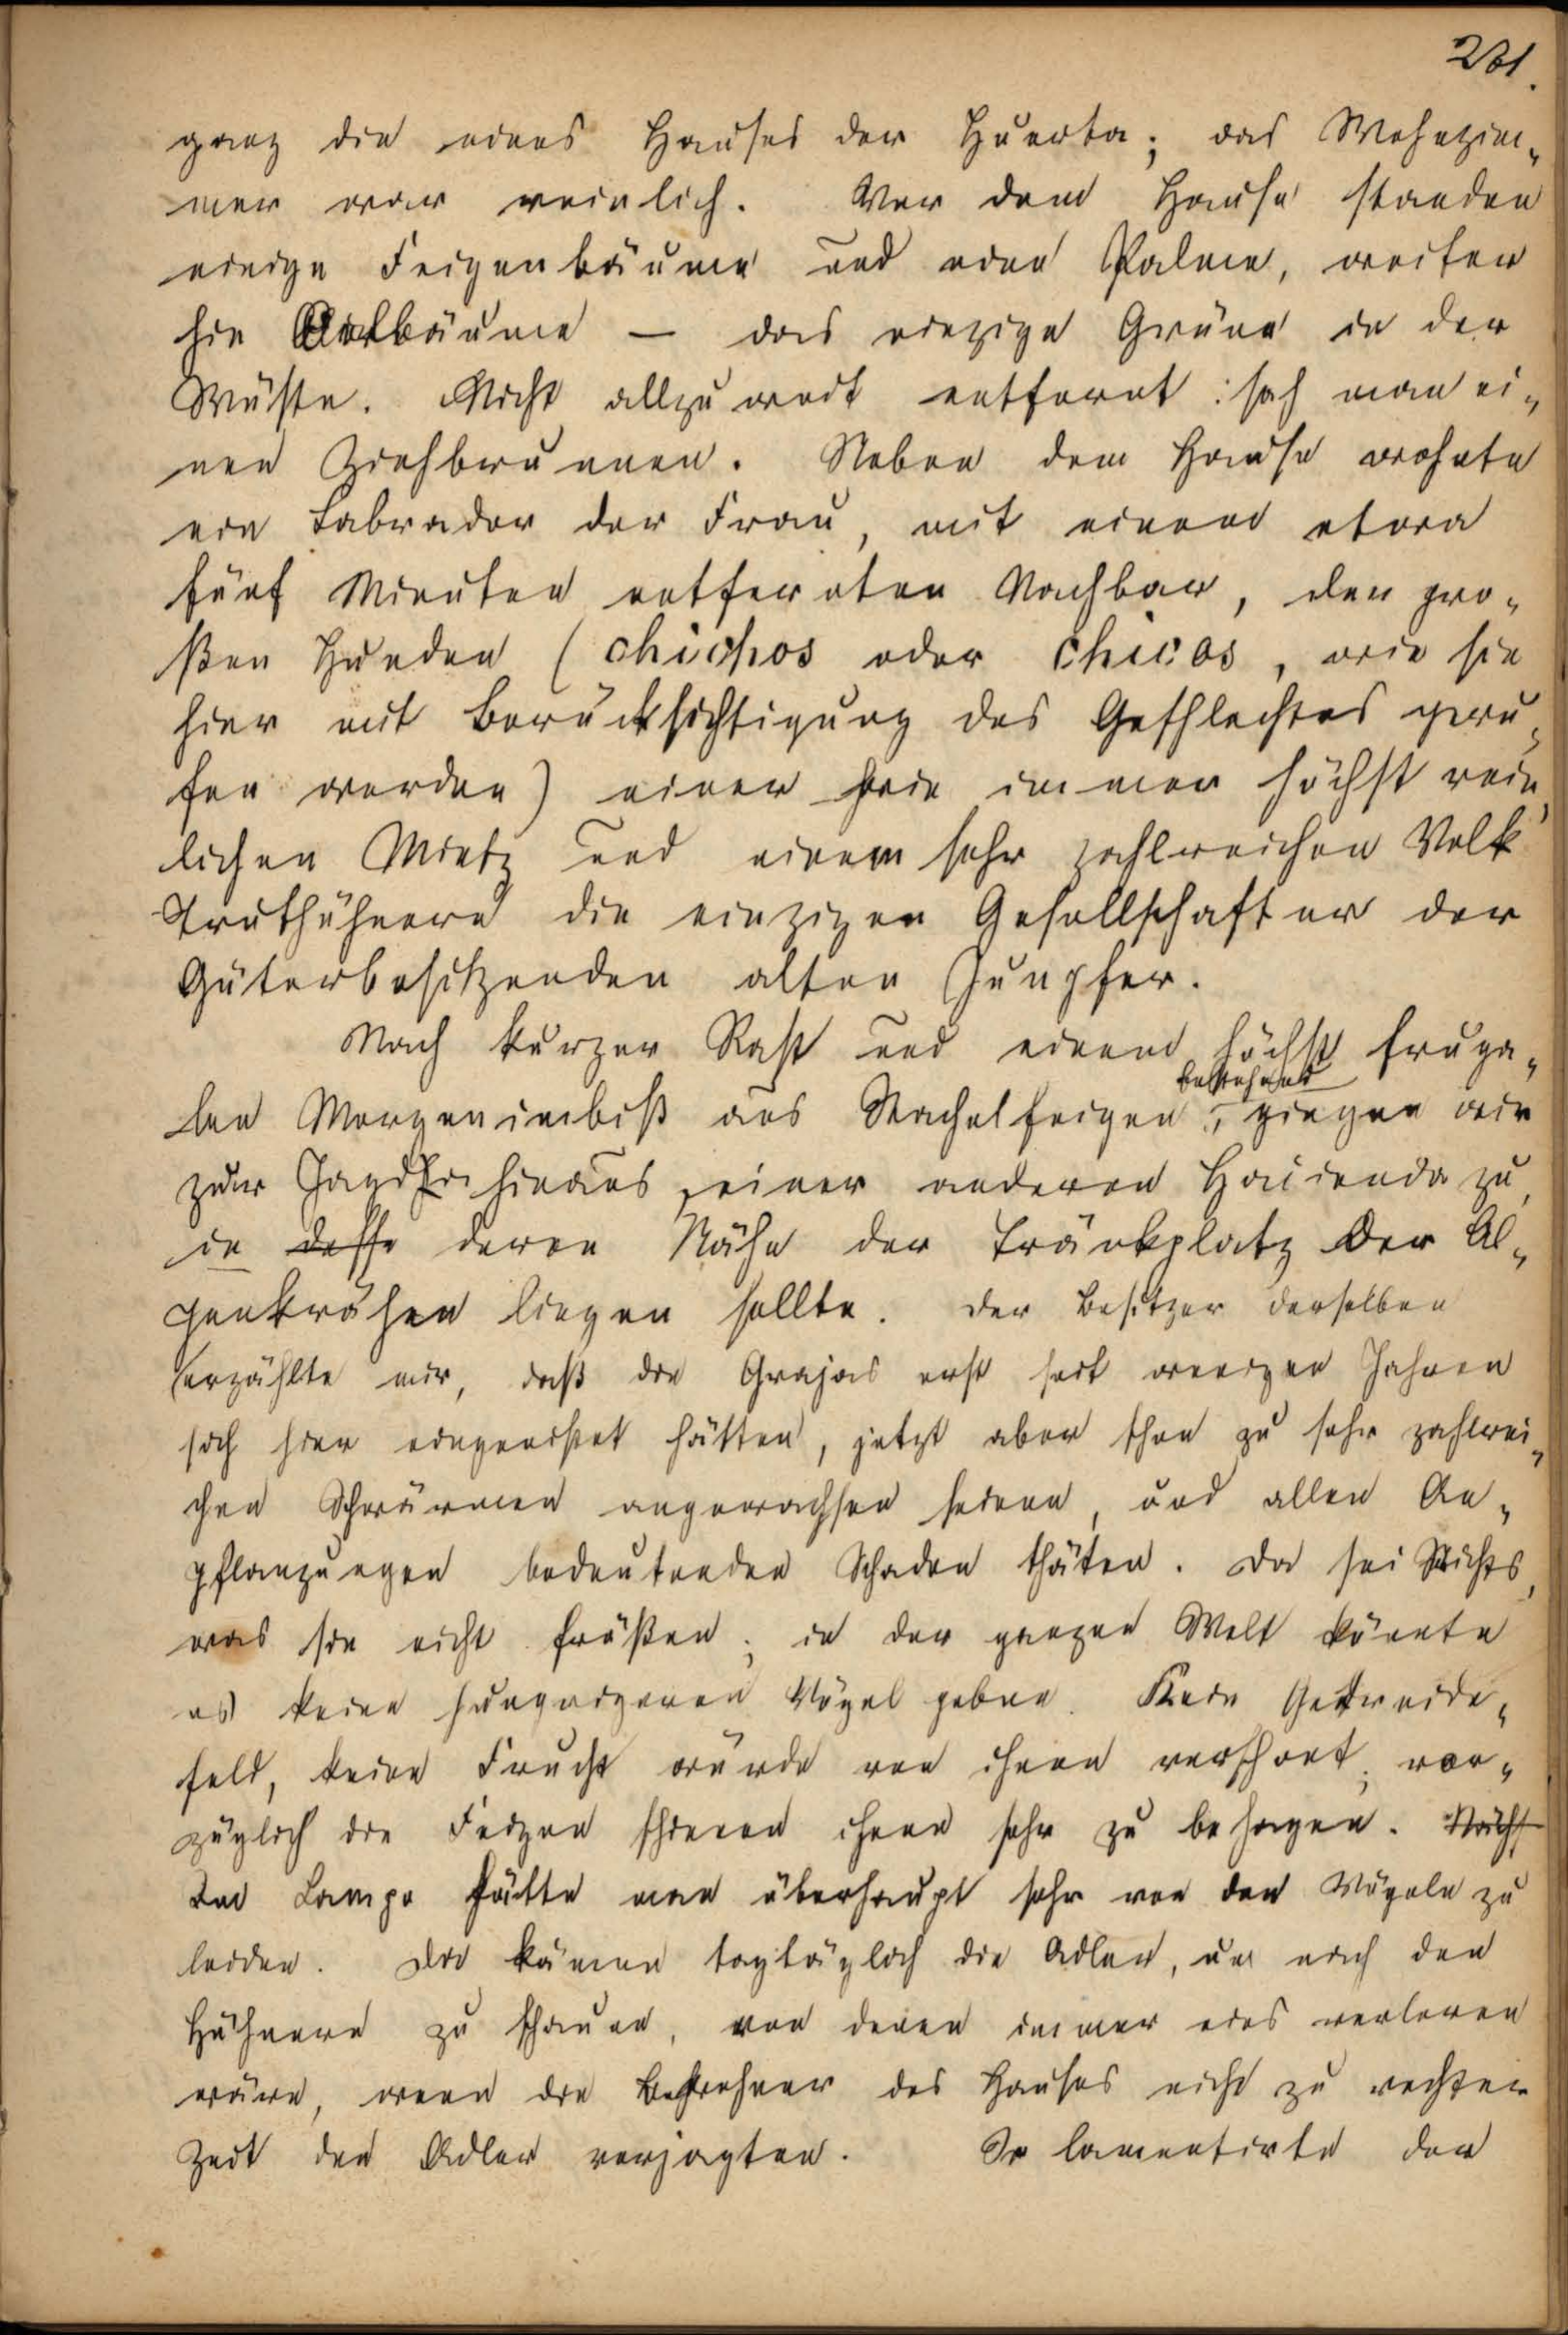 231.
ganz die eines Hauses der Huerta; das Wohnzim-
mer war reinlich. Vor dem Hause standen
einige Feigenbäume und eine Palme, weiter
hin Oelbäume — das einzige Grüne in der
Wüste. Nicht allzu weit entfernt sah man ei-
nen Ziehbrunnen. Neben dem Hause wohnte
ein Labrador der Frau, mit einem etwa
fünf Minuten entfernten Nachbar, den gro-
ßen Hunden (chuchos oder chicas, wie sie
hier mit Berücksichtigung des Geschlechtes geru-
fen werden) einer wie immer höchst rein-
lichen Mietz und einem sehr zahlreichen Volk
Truthühnern die einzigen Gesellschafter der
Güterbesitzenden alten Jungfer.
Nach kurzer Rast und einem höchst fruga-
bestehend
len Morgenimbiß aus Stachelfeigen, gingen wir
zur Jagd hinaus, einer anderen Hacienda zu,
in desse deren Nähe der Tränkplatz der Al-
penkrähen liegen sollte. Der Besitzer derselben
erzählte mir, daß die Grajas erst seit wenigen Jahren
sich hier eingenistet hätten, jetzt aber schon zu sehr zahlrei-
chen Schwärmen angewachsen seien, und allen An-
pflanzungen bedeutenden Schaden thäten. Da sei Nichts,
was sie nicht fräßen; in der ganzen Welt könnte
es keine hungrigeren Vögel geben. Kein Getreide-
feld, keine Frucht würde von ihnen verschont; vor-
züglich die Feigen schienen ihnen sehr zu behagen. Nächst
Im Campo hätte man überhaupt sehr von den Vögeln zu
leiden. Da kämen tagtäglich die Adler, um nach den
Hühnern zu schauen, von denen immer eins verloren
wäre, wenn die Bewohner des Hauses nicht zu rechter
Zeit den Adler verjagten. So lamentirte der